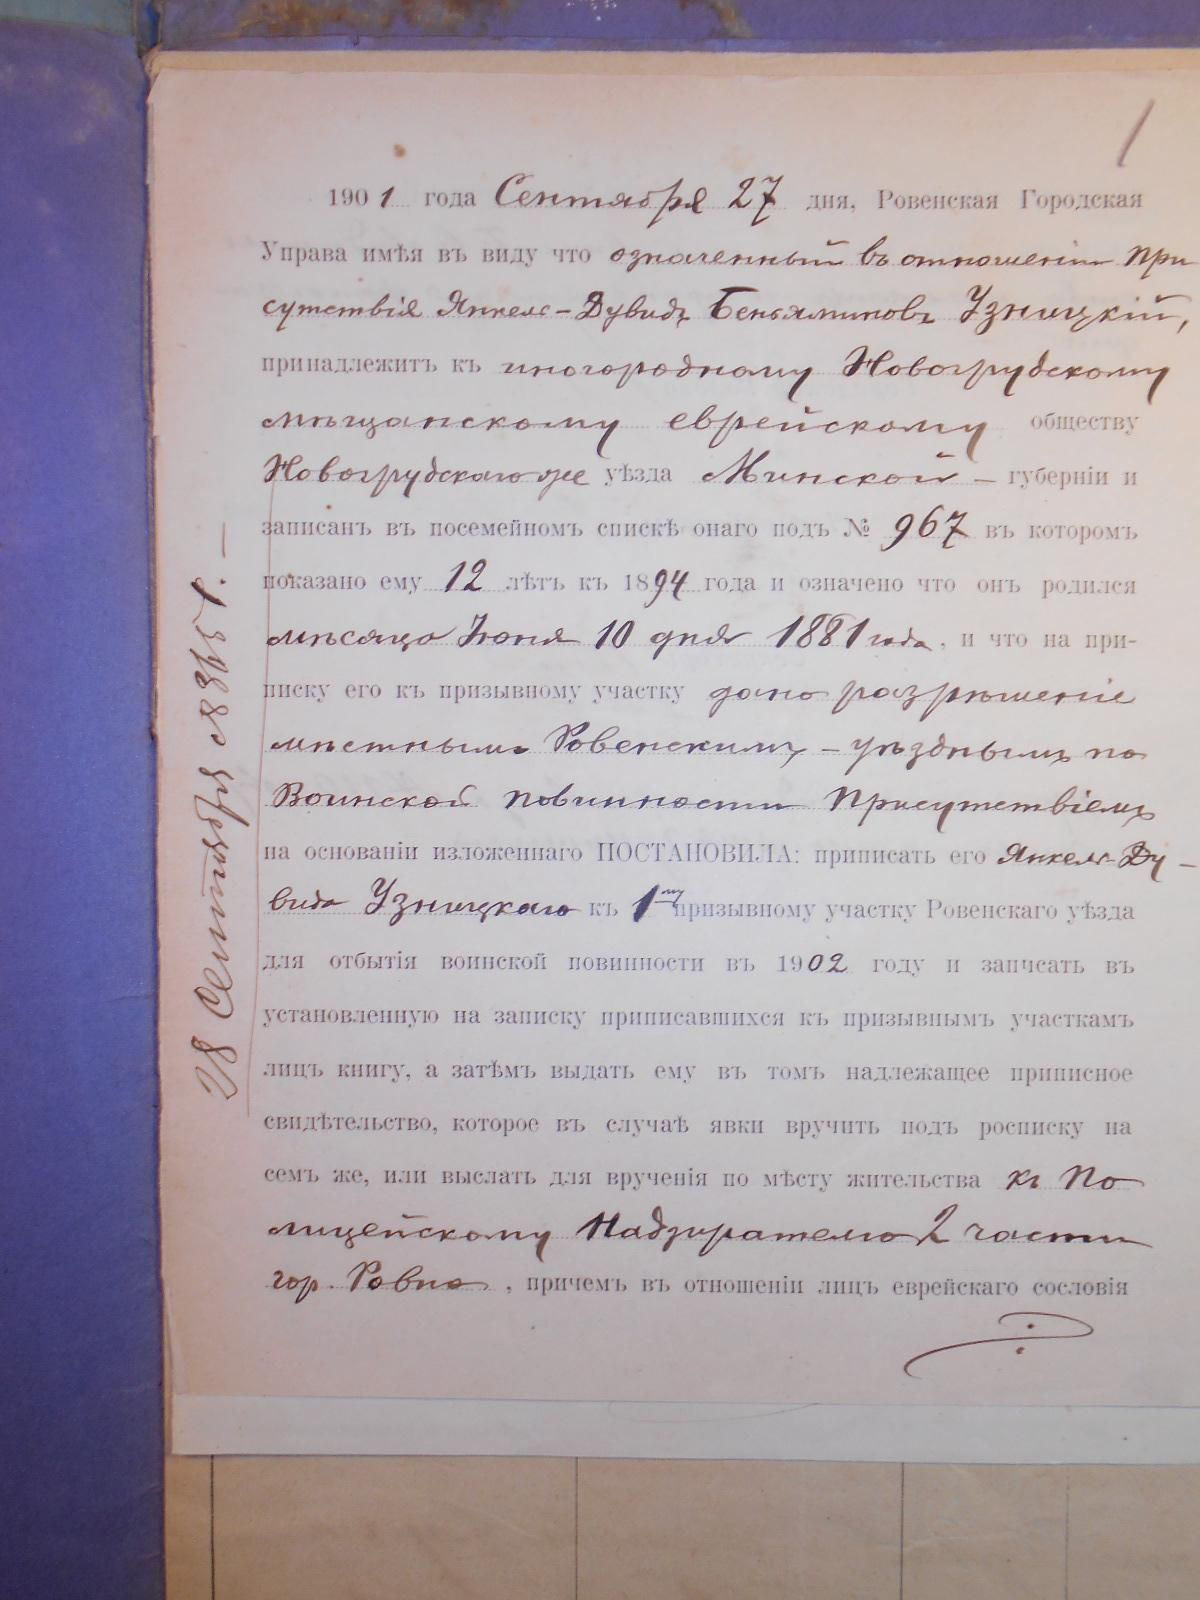 1
1901 года Сентября 27 дня, Ровенская Городская
Управа имѣя въ виду что означенный въ отношеніи При
сутствія Янкель-Дувидъ Беньяминовъ Узницкій,
принадлежитъ къ иногородному Новогрудскому
мѣщанскому еврейскому обществу
Новогрудскаго же уѣзда Минской – губерніи и
записанъ въ посемейномъ спискѣ онаго подъ № 967 въ которомъ
показано ему 12 лѣтъ къ 1894 года и означено что онъ родился
мѣсяца Іюня 10 дня 1881 года, и что на при-
писку его къ призывному участку дано разрѣшеніе
мѣстнымъ Ровенскимъ – уѣзднымъ по
Воинской повинности Присутствіемъ
на основаніи изложеннаго ПОСТАНОВИЛА: приписать его Янкель-Ду-
вида Узницкаго къ 1му призывному участку Ровенскаго уѣзда
для отбытія воинской повинности въ 1902 году и запчсать въ
установленную на записку приписавшихся къ призывнымъ участкамъ
лицъ книгу, а затѣмъ выдать ему въ томъ надлежащее приписное
свидѣтельство, которое въ случаѣ явки вручить подъ росписку на
семъ же, или выслать для врученія по мѣсту жительства къ По
лицейскому Надзирателю 2 части
гор. Ровно, причемъ въ отношеніи лицъ еврейскаго сословія
28 Сентября